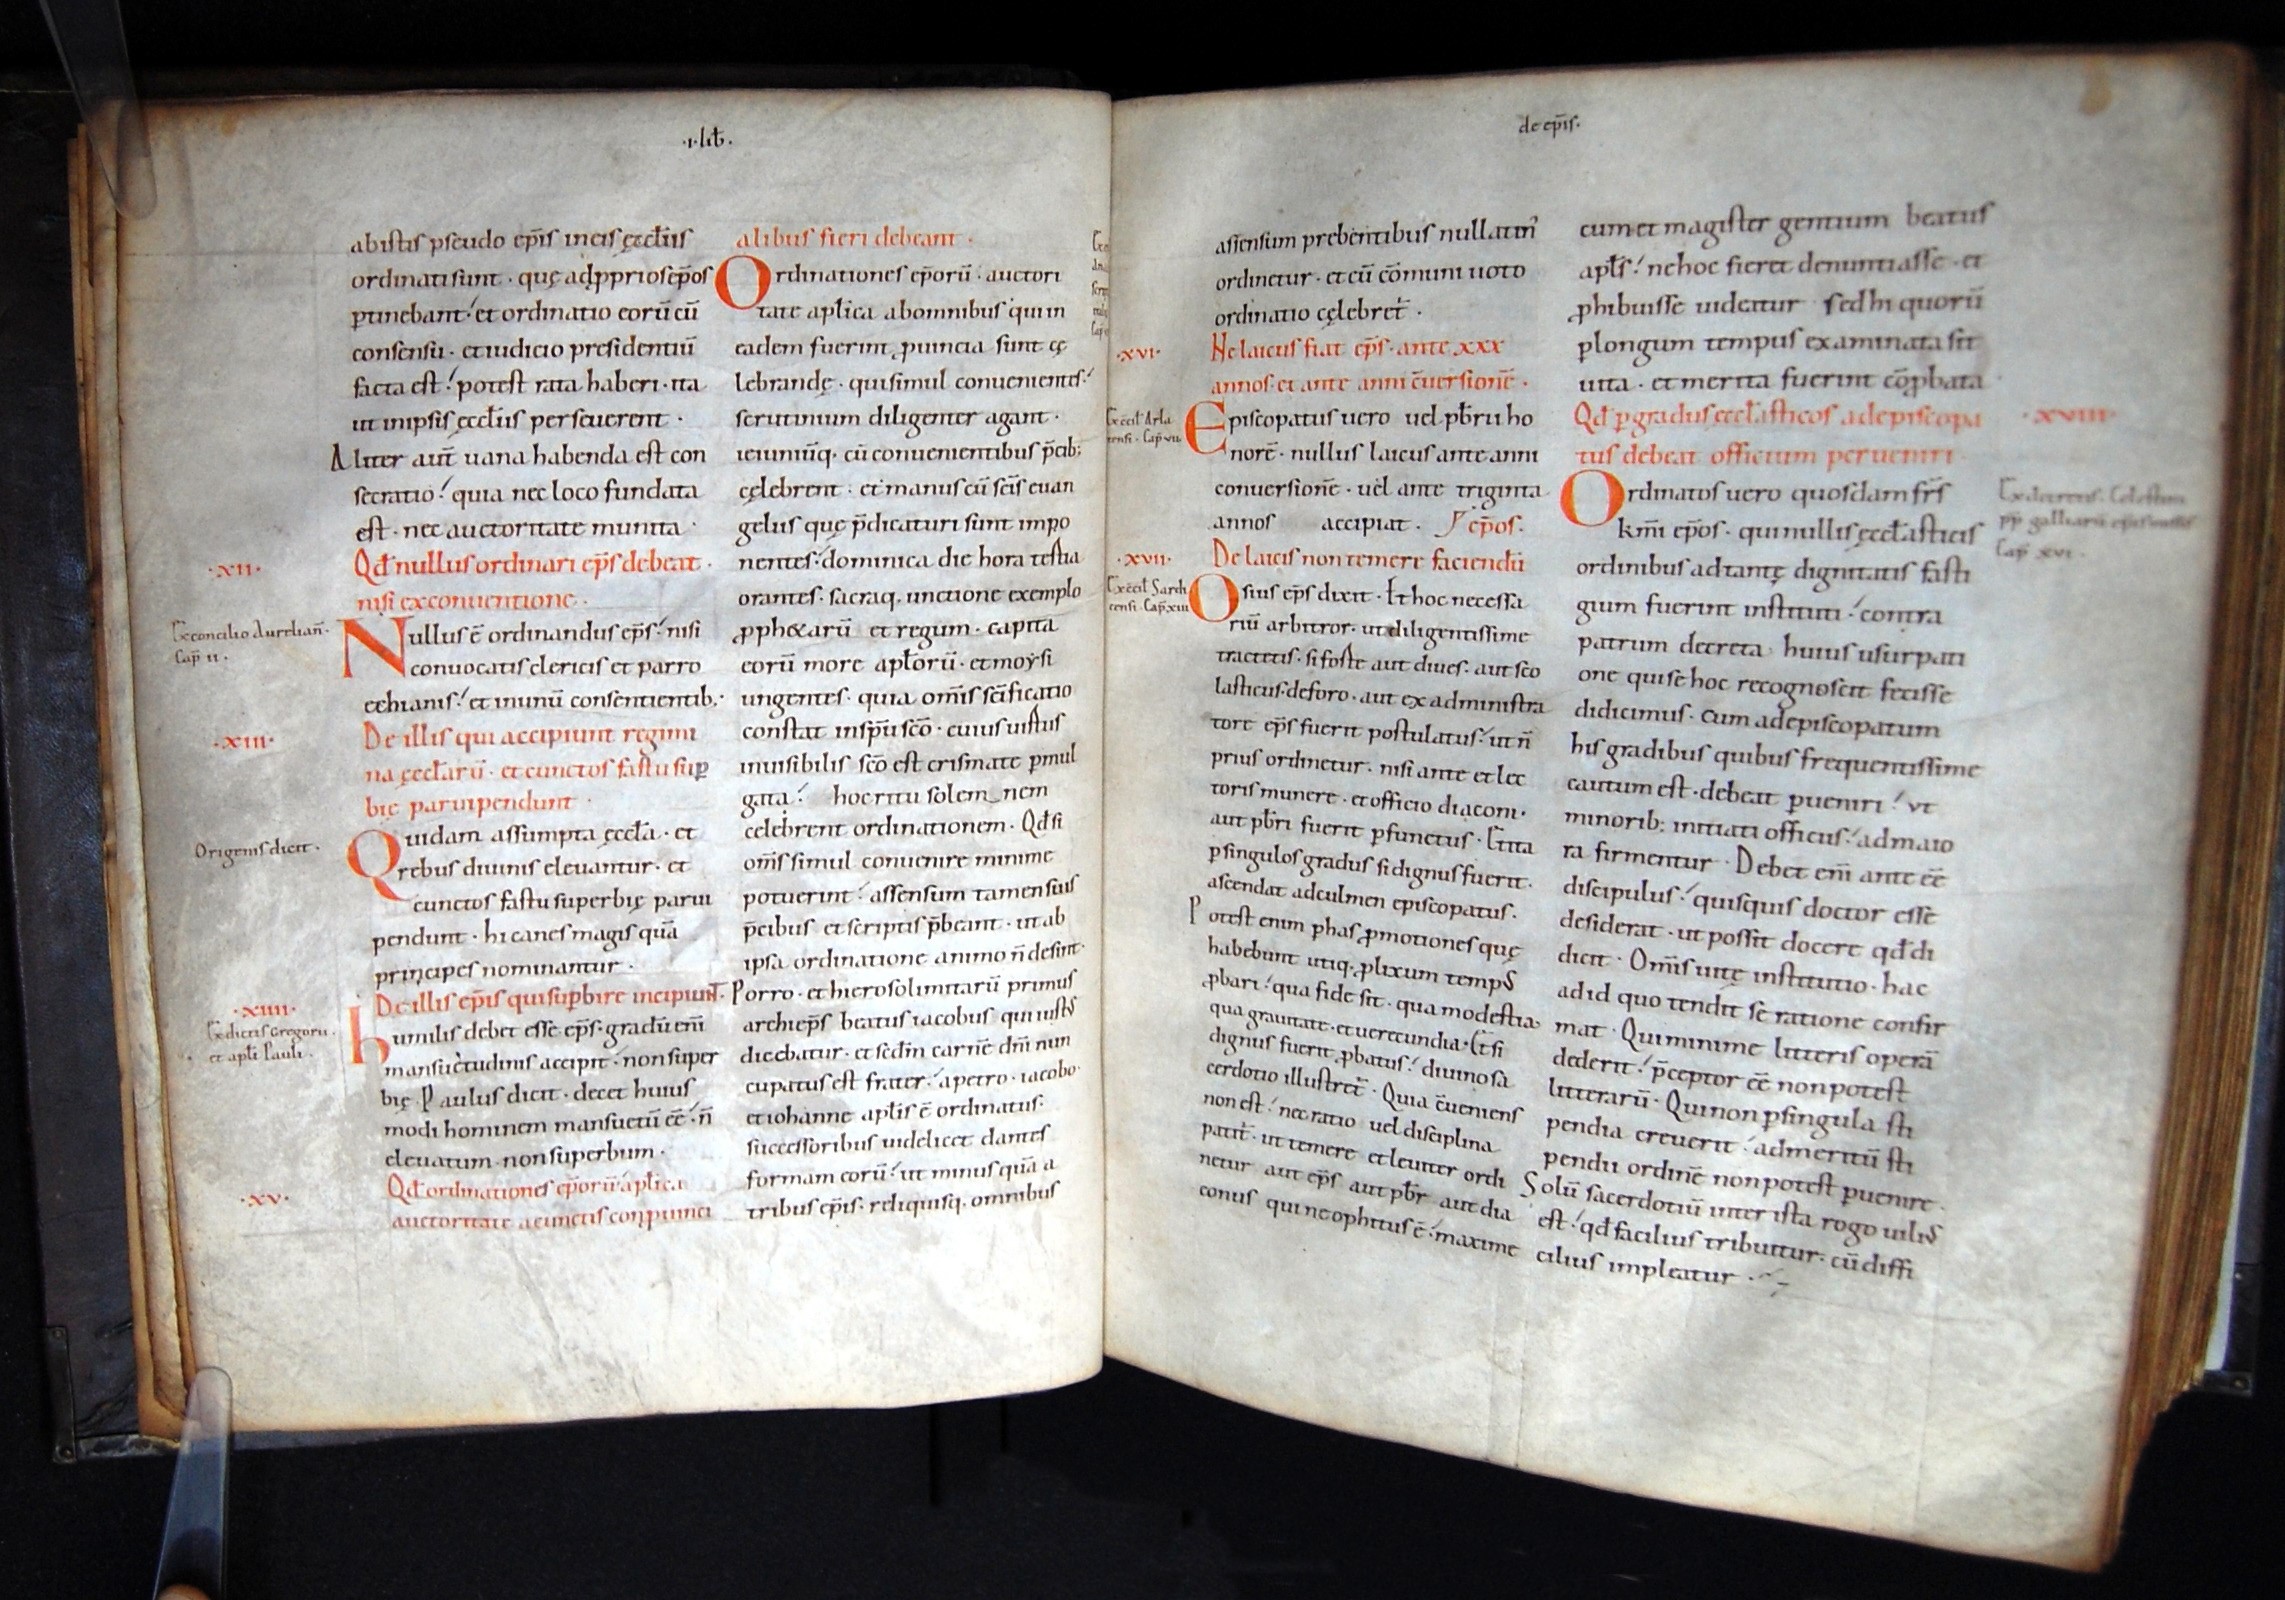 ·i·lib̄·
abistis pseudo ep̄is incis ęccl̄iis
ordinati sunt · quę ad pprios ep̄os
ptinebant · et ordinatio eorū cū
consensu · et iudicio presidentiū
facta est · potest rata haberi · ita
ut in ipsis ęccl̄iis perseuerent ·
Aliter aut̄ uana habenda est con
secratio · quia nec loco fundata
est · nec auctoritate munita ·
·xii·
Qd̄ nullus ordinari ep̄s debeat ·
nisi ex conuentione ·
Ex concilio Aurelian̄ ·
Cap̄ ii ·
Nullus ē ordinandus ep̄s · nisi
conuocatis clericis et parro
echianis · et in unū consentientib; ·
·xiii·
De illis qui accipiunt regimi
na ęccl̄arū · et cunctos fastu sup
bię paruipendunt ·
Origenis dicit ·
Quidam assumpta ęccl̄a · et
rebus diuinis eleuantur · et
cunctos fastu superbię parui
pendunt · hi canes magis quā
principes nominantur ·
·xiiii·
De illis ep̄is qui supbire incipiunt ·
Ex dictis Gregorii ·
et apl̄i Pauli ·
humilis debet esse ep̄s · gradū eni̅
mansuetudinis accipit · non super
bię · Paulus dicit · decet huius
modi hominem mansuetū eē · n̄
eleuatum · non superbum ·
·xv·
Qd̄ ordinationes ep̄orū aplica
auctoritate a cunctis conpuinci
alibus fieri debeant ·
Ordinationes ep̄orū · auctori
tate aplica ab omnibus qui in
eadem fuerint puincia sunt cę
lebrandę · qui simul conuenientes ·
scrutinium diligenter agant ·
ieiuniūq · cū conuenientibus p̄cib;
cęlebrent · et manus cū sc̄is euan
geliis quę p̄dicaturi sunt impo
nentes · dominica die hora tertia
orantes · sacraq · unctione exemplo
pphetarū et regum · capita
eorū more apl̄orū · et moysi
ungentes · quia om̄is sc̄ificatio
constat in sp̄u sc̄o · cuius uirtus
inuisibilis sc̄o est crismate pmix
gata · hoc ritu solem nem
celebrent ordinationem · Qd̄ si
om̄s simul conuenire minime
potuerint · assensum tamen suis
p̄cibus et scriptis p̄beant · ut ab
ipsa ordinatione animo n̄ desint ·
Porro · et hierosolimitarū primus
archiep̄s beatus iacobus qui iustus
dicebatur · et sedm̄ carnē dni̅ nun
cupatus est frater · a petro · iacobo ·
et iohanne apl̄is ē ordinatus ·
successoribus uidelicet dantes
formam eorū · ut minus quā a
tribus ep̄is · reliquisq · omnibus
de ep̄is ·
assensum prebentibus nullatin̄
ordinetur · et cū cōmuni uoto
ordinatio cęlebret̄ ·
·xvi·
Ne laicus fiat ep̄s · ante xxx
annos · et ante anni c̄uersionē ·
Ex c̄cil̄ Arla
tensi · Cap̄ vii
Episcopatus uero uel pb̄rii ho
norē · nullus laicus ante anni
conuersionē · uel ante triginta
annos accipiat · ep̄os ·
·xvii·
De laicis non temere faciendū
Ex c̄cil̄ Sardi
censi · Cap̄ xiii
Osius ep̄s dixit · Et hoc necessa
riū arbitror · ut diligentissime
tractetis · si forte aut diues · aut sco
lasticus · de foro · aut ex administra
tore ep̄s fuerit postulatus · ut n̄
prius ordinetur · nisi ante et lec
toris munere · et officio diaconi ·
aut pb̄ri fuerit pfunctus · Et ita
psingulos gradus si dignus fuerit ·
ascendat ad culmen episcopatus ·
Potest enim phas pmotiones quę
habebunt utiq · plixum temp9
pbari · qua fide sit · qua modestia ·
qua grauitate · et uerecundia · Et si
dignus fuerit pbatus · diuino sa
cerdotio illustret̄ · Quia c̄ueniens
non est · nec ratio uel disciplina
patit̄ · ut temere et leuiter ordi
netur aut ep̄s aut pb̄r aut dia
conus qui neophitus ē · maxime
cum et magister gentium beatus
apl̄s · ne hoc fieret denuntiasse · et
phibuisse uideatur sed hi quorū
plongum tempus examinata sit
uita · et merita fuerint cōpbata
·xviii·
Qd̄ p gradus ęccl̄asticos ad episcopa
tus debeat officium perueniri ·
Ex decretis · Celestini
pp̄ galliarū ep̄is missis
Cap̄ xvi ·
Ordinatos uero quosdam fr̄s
km̄i ep̄os · qui nullis ęccl̄asticis
ordinibus ad tantę dignitatis fasti
gium fuerint instituti · contra
patrum decreta huius usurpati
one qui se hoc recognoscit fecisse
didicimus · cum ad episcopatum
his gradibus quibus frequentissime
cautum est · debeat pueniri · ut
minorib; initiati officiis · ad maio
ra firmentur · Debet eni̅ ante eē
discipulus · quisquis doctor esse
desiderat · ut possit docere qd̄ di
dicit · Om̄is uitę institutio · hac
ad id quo tendit se ratione confir
mat · Qui minime litteris operā
dederit · p̄ceptor eē non potest
litterarū · Qui non psingula sti
pendia creuerit · ad meritū sti
pendii ordinē non potest puenire ·
Solū sacerdotiū inter ista rogo uili9
est · qd̄ facilius tribuitur · cū diffi
cilius impleatur ·